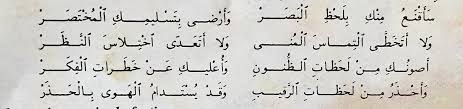 سَأَقْنَعُ مِنْكِ بِلَحْظِ الْبَصَرْ وَأَرْضَى بِتَسْلِيمِكِ الْمُخْتَصَرْ
وَلَا أَتَخَطَّى الْتِمَاسَ الْمُنَى وَلَا أَتَعَدَّى اخْتِلَاسَ النَّظَرْ
أَصُونُكِ مِنْ لَحَظَاتِ الظُّنُونِ وَأُعْلِيكِ عَنْ خَطَرَاتِ الْفِكَرْ
وَأَحْذَرُ مِنْ لَحَظَاتِ الرَّقِيبِ وَقَدْ يُسْتَدَامُ الْهَوَى بِالْحَذَرْ